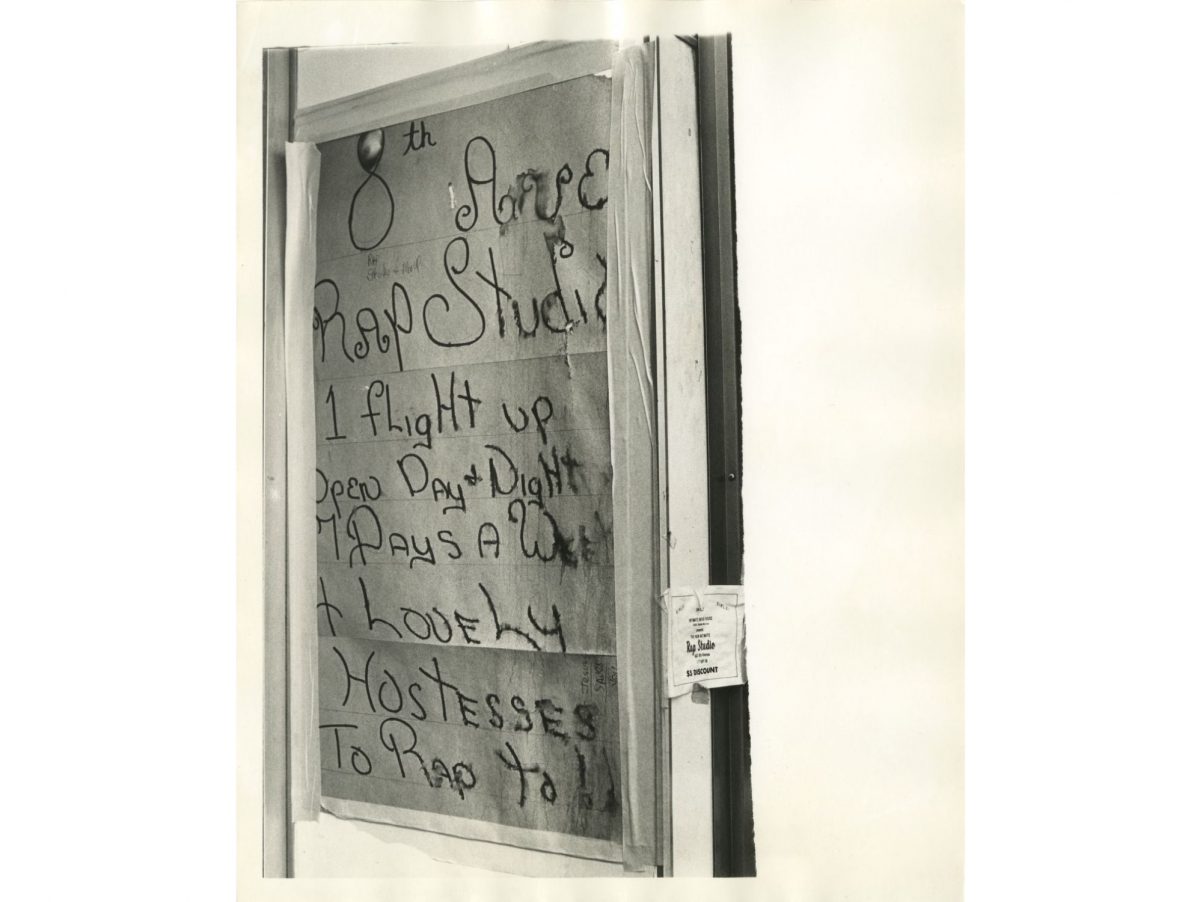 8th Ave
Rap Studio
1 fLigHt up
Open Day & Night
7 Days A Week
+ LoveLy
HosTesses
To Rap to!!
Rap Studio
$5 DISCOUNT